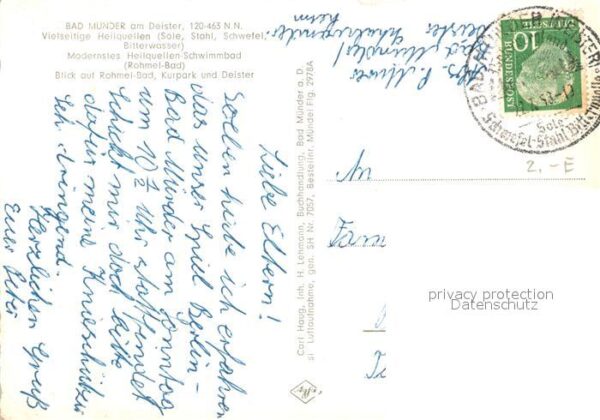 BAD MÜNDER am Deister, 120-463 N.N.
Vielseitige Heilquellen (Sole, Stahl, Schwefel,
Bitterwasser)
Modernstes Heilquellen-Schwimmbad
(Rohmel-Bad)
Blick auf Rohmel-Bad, Kurpark und Deister
Abs. P.
Bad Münder/
Deister
Heim
Liebe Eltern!
Soeben habe ich erfahren
das unser Spiel Berlin-
Bad Münder am Sonntag
um 10 ½ Uhr stattfindet
Schickt mir doch bitte
dafür meine Knieschützer
Ich dringend.
Herzlichen Gruß
Euer Peter
Carl Haug, Inh. H. Lehmann, Buchhandlung, Bad Münder a. D.
si Luftaufnahme, gen. SH Nr. 7057, Bestellnr. Mündel Flg. 2978A
10
DEUTSCHE
BUNDESPOST
Schwefel-Stahl-Bitter
Sole
2.-E
An
Fam
privacy protection
Datenschutz